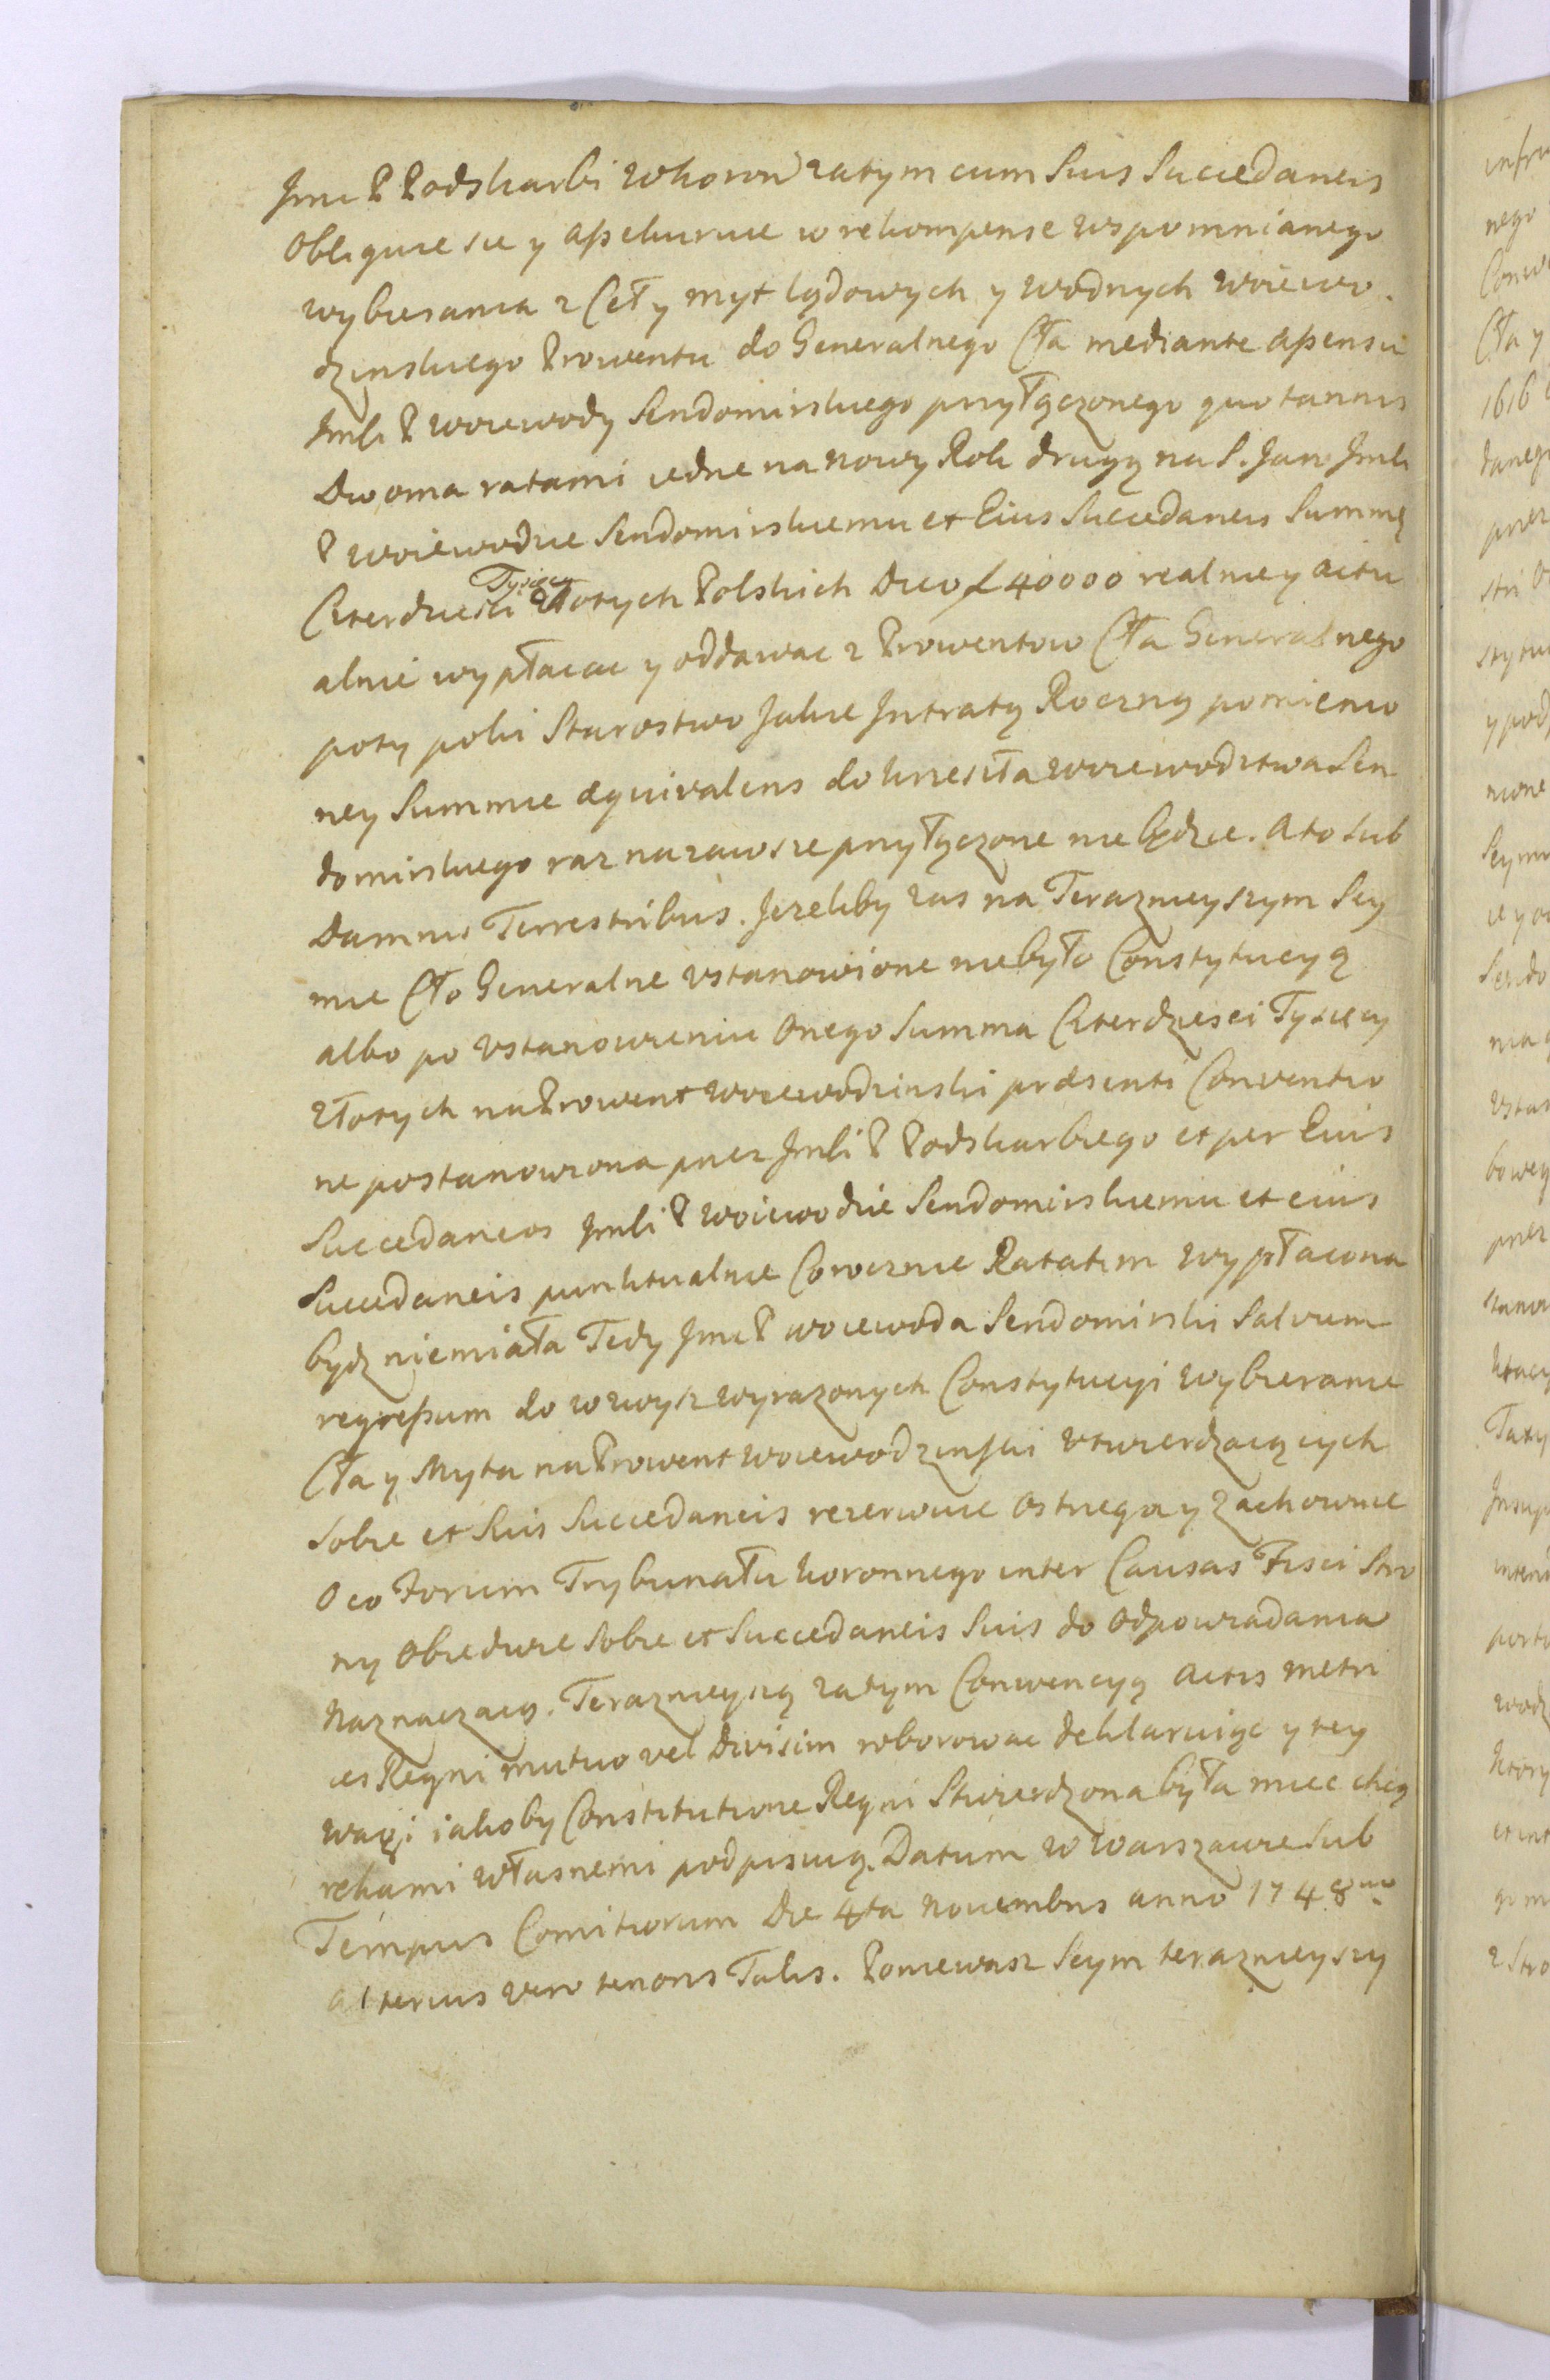 Jmci P Podskarbi W koron zatym cum Suis Succedaneis
Obliguie sie y asekuruie w rekompense wspomnianego
wybierania z Ceł y myt lądowych y wodnych woiewo.
dzinskiego Prowentu do Generalnego Cła mediante assensu
Jmći P woiewody Sendomirskiego przyłączonego quotannis
Dwoma ratami iedne na nowy Rok drugą na S. Jan Jmći
P woiewodzie Sendomirskiemu et Eius Succedaneis Summę
Czterdziesci Tysięcy Złotych Polskich Dico f 40000 realnie y actu
alnie wypłacac y oddawac z Prowentow Cła Generalnego
poty poki Starostwo Jakie Jntratą Roczną pomienio
ney Summie æquivalens do krzesła woiewodztwa Sen
domirskiego raz nazawsze przyłączone nie będzie. A to sub
Damnis Terrestribus. Jezeliby zas na Teraznieyszym Sey
mie Cło Generalne ustanowione niebyło Constytucyą
albo po ustanowieniu Onego Summa Czterdziesci Tysięcy
złotych na Prowent woiewodzinski præsenti Conventio
ne postanowiona przez Jmći P Podskarbiego et per Eius
Succedaneos Jmći P woiewodzie Sendomirskiemu et eius
Succedaneis punktualnie Corocznie Ratatim wypłacona
bydz niemiała Tedy Jmci P woiewoda Sendomirski Salvum
regressum do wzwysz wyrazonych Constytucyi wybieranie
Cła y Myta na Prowent woiewodzinski utwierdzaiących
Sobie et Suis Succedaneis rezerwuie Ostrzega y zachowuie
O co Forum Trybunału koronnego inter Causas Fisci Stro
ny Obiedwie Sobie et Succedaneis Suis do Odpowiadania
Naznaczaią. Teraznieyszą zatym Conwencyą Actis metri
ces Regni mutuo vel divisim roborowac deklaruiąc y tey
wagi iakoby Constitutione Regni Stwierdzona była miec chcą
rękami własnemi podpisuią. Datum w Warszawie Sub
Tempus Comitiorum Die 4ta Novembris anno 1748vo
Alterius vero tenoris Talis. Poniewasz Seym teraznieyszy